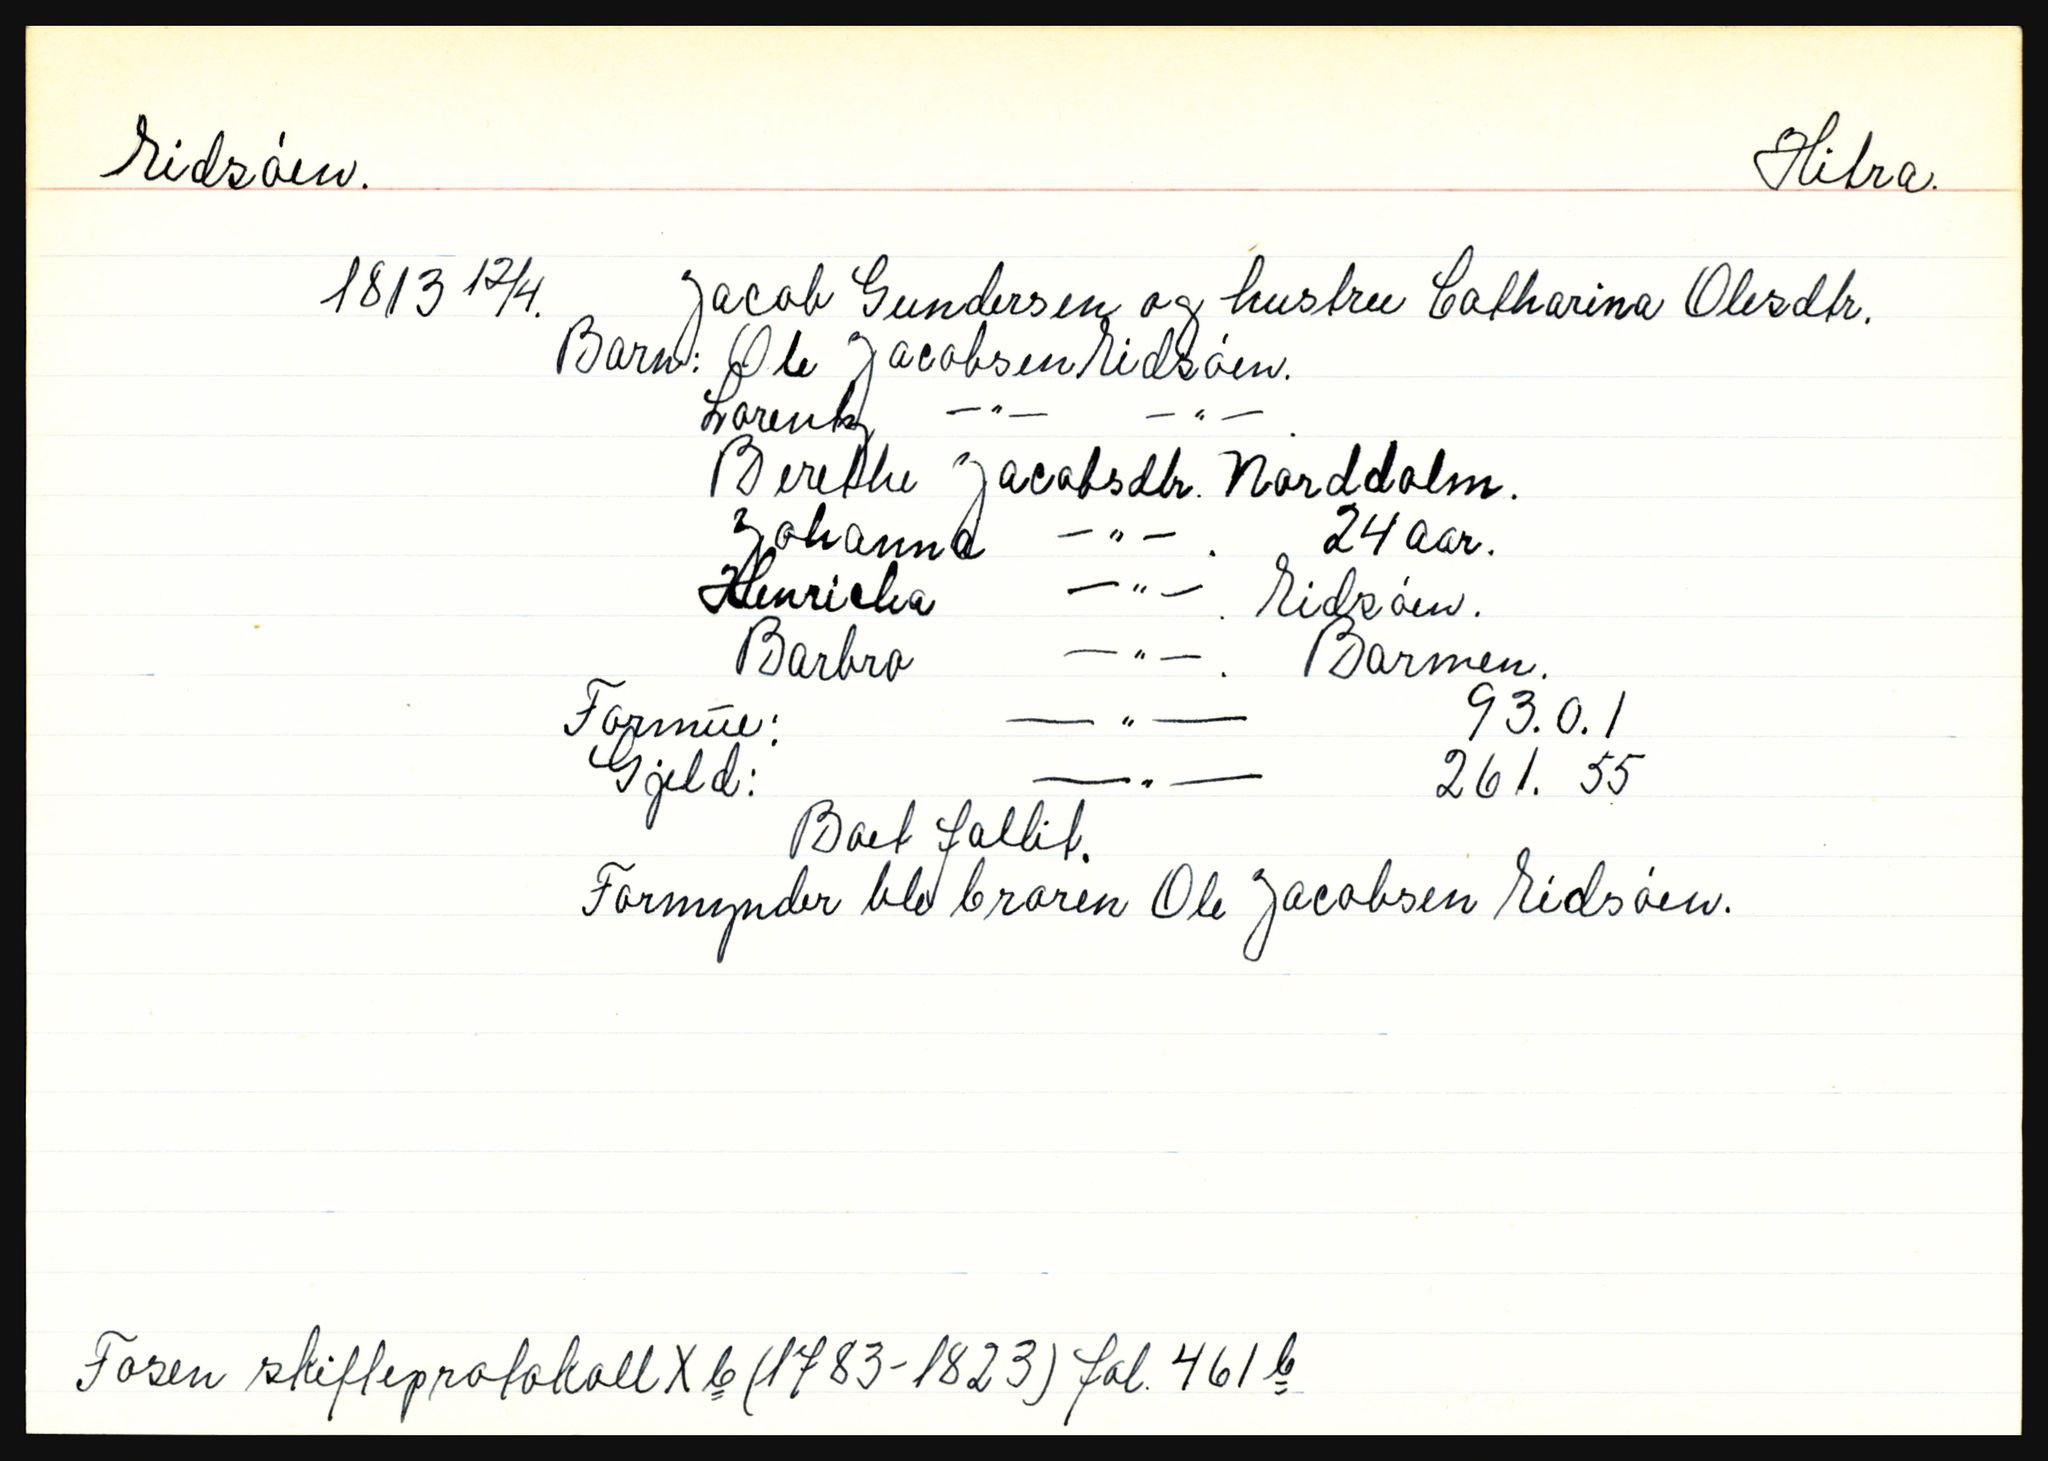 Eidsøen. Hitra.
1813 12/4. Jacob Gundersen og hustru Catharina Olesdtr.
Barn: Ole Jacobsen Eidsøen.
Lorentz —"— —"— .
Berethe Jacobsdtr. Norddolm.
Johanna —"— . 24 aar.
Henricha —"— . Eidsøen.
Barbro —"— . Barmen.
Formue: —"— 93.0.1
Gjeld: —"— 261. 55
Boet fallit.
Formynder ble broren Ole Jacobsen Eidsøen.
Fosen skifteprotokoll X b (1783-1823) fol. 461 b